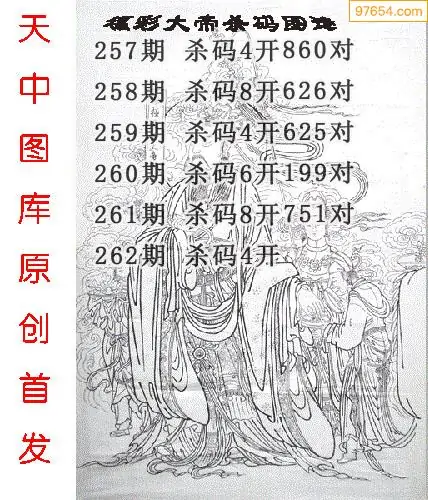 97654.com
福彩大帝杀码图迷
257期 杀码4开860对
258期 杀码8开626对
259期 杀码4开625对
260期 杀码6开199对
261期 杀码8开751对
262期 杀码4开
天中图库原创首发